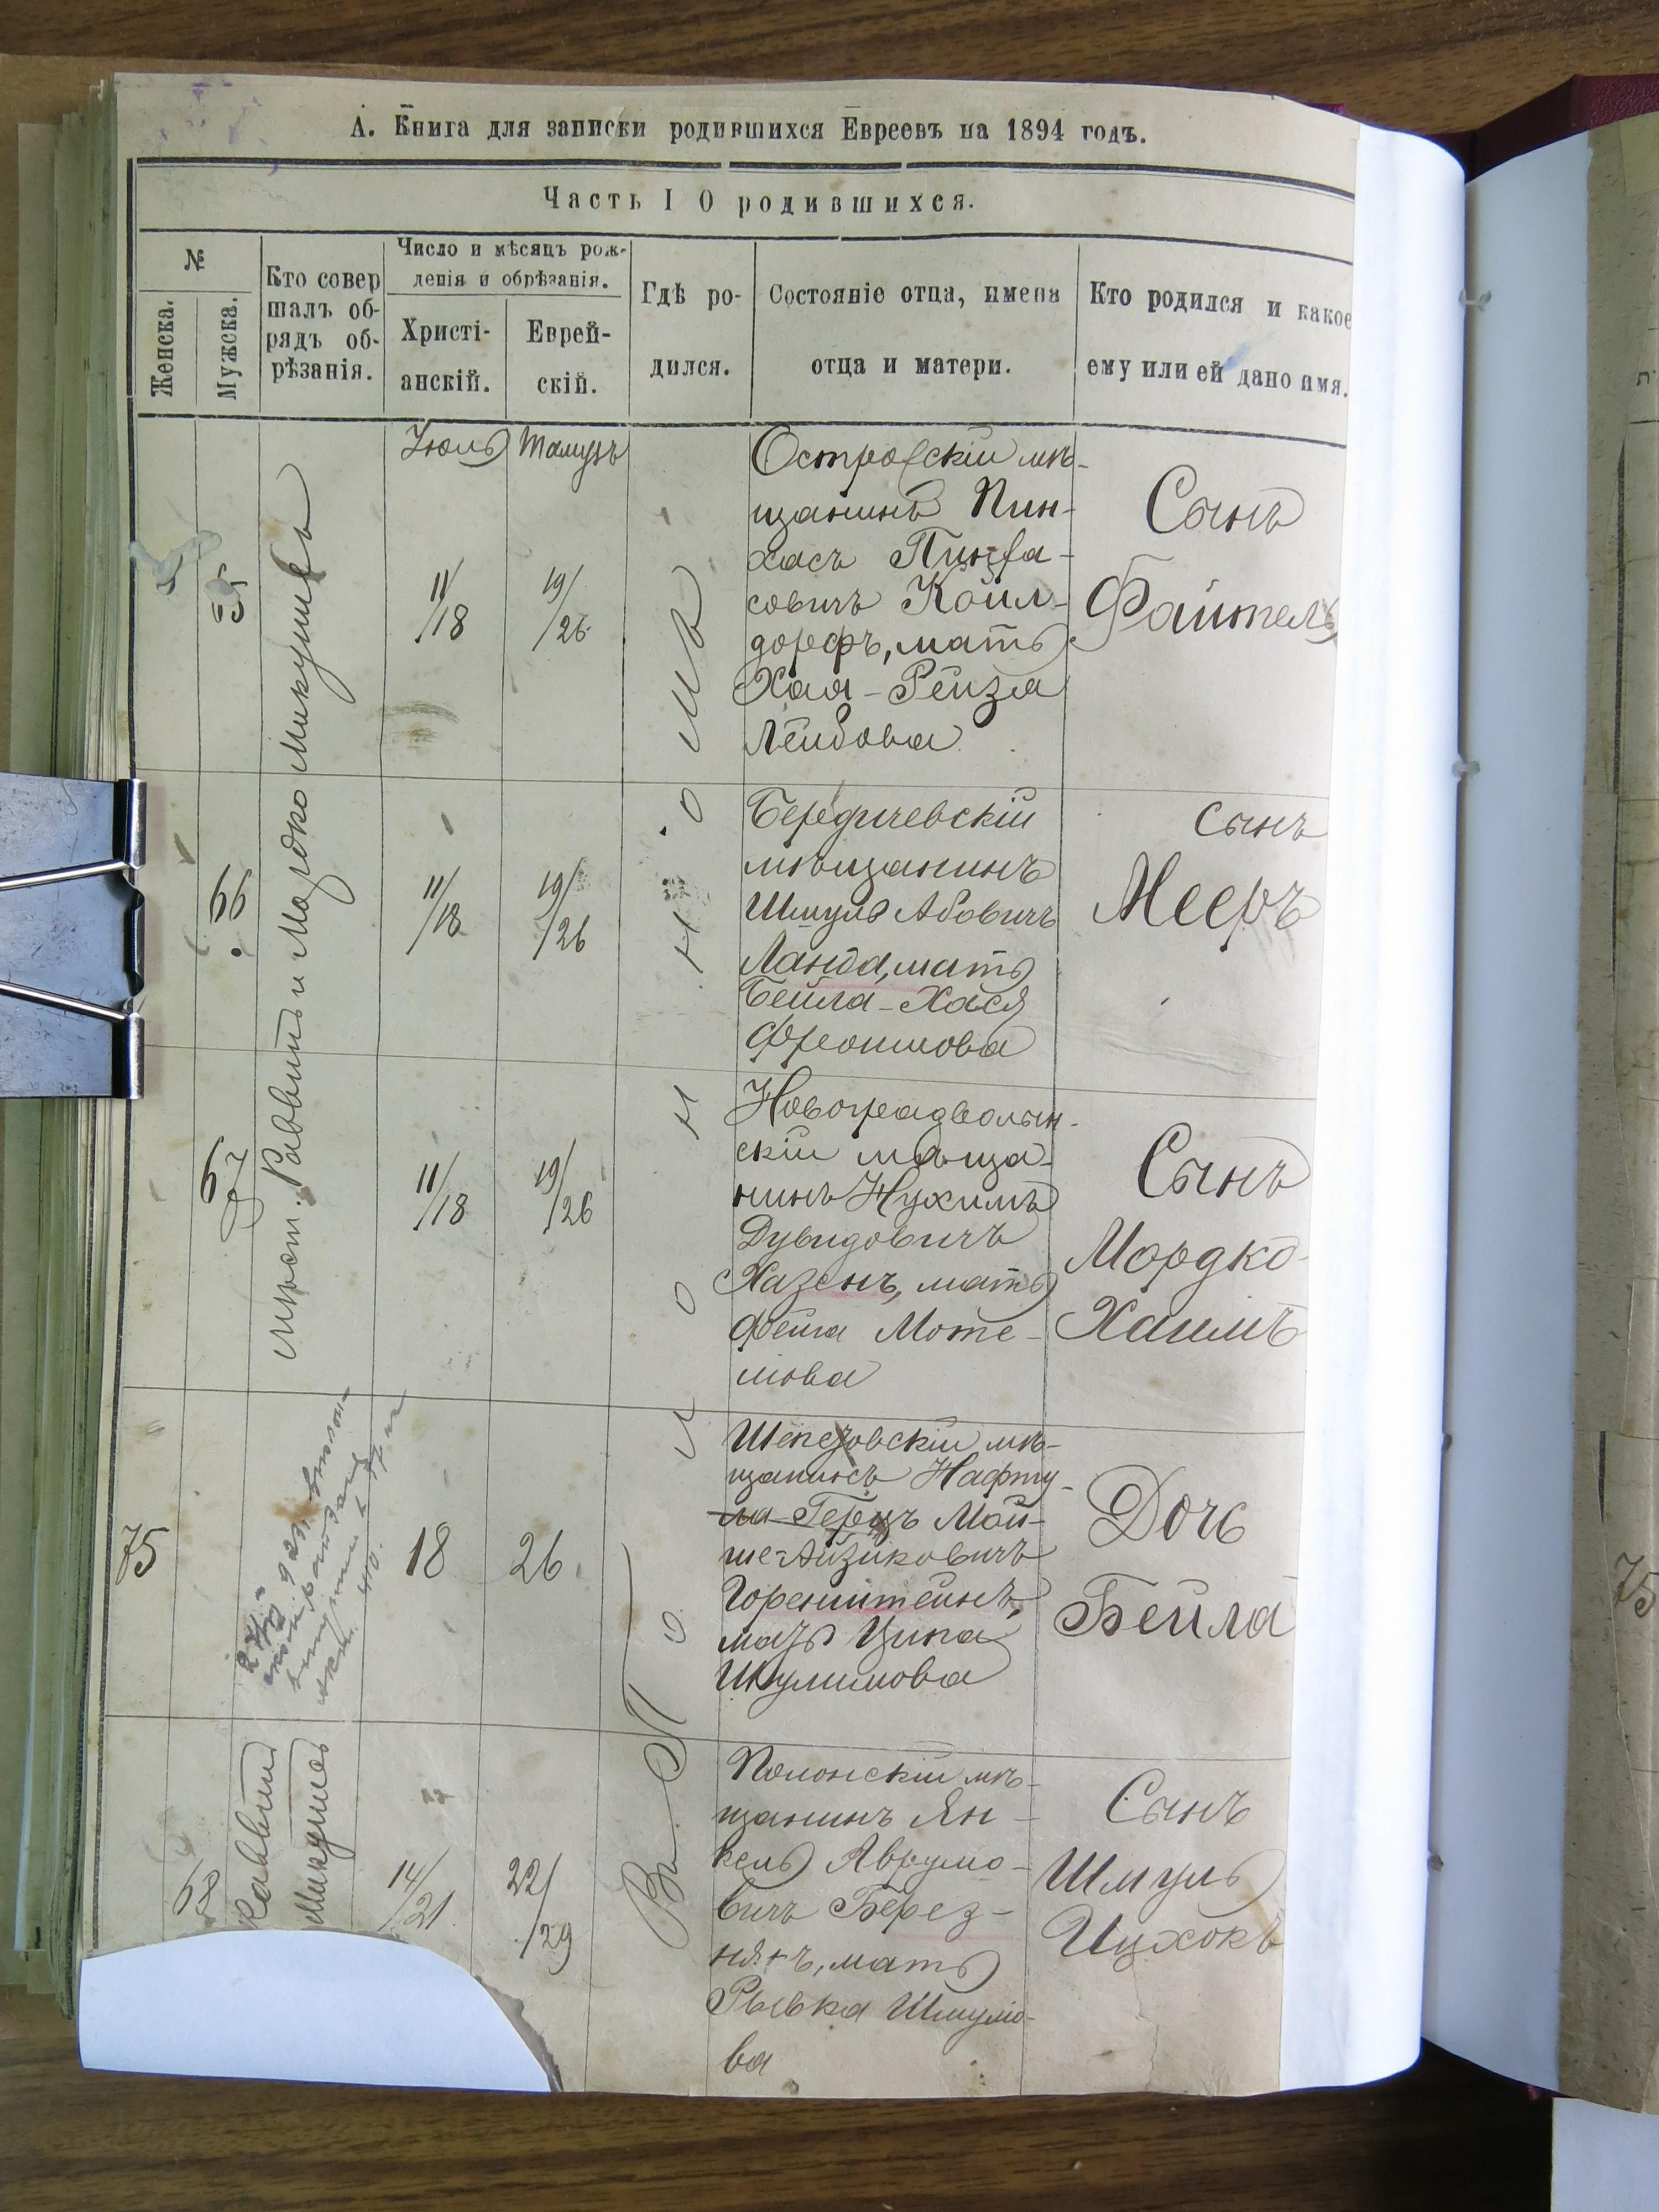 А. Книга для записки родившихся Евреевъ на 1894 годъ.
Часть I О родившихся.
№
Женска.
Мужска.
Кто совер
шалъ об-
рядъ об-
рѣзанія.
Число и мѣсяцъ рож-
денія и обрѣзанія.
Христі-
анскій.
Еврей-
скій.
Гдѣ ро-
дился.
Состояніе отца, имена
отца и матери.
Кто родился и какое
ему или ей дано имя.
Июль
Тамузъ
мѣст. Раввинъ и Мордко Микушев
Въ м Полонномъ
65
11/
/18
19/
/26
Островскій мѣ-
щанинъ Пин-
хасъ Пинха-
совичъ Койл-
дорфъ, мать
Хая-Рейзя
Лейбова
Сынъ
Файтель
66
11/
/18
19/
/26
Бердичевскій
мѣщанинъ
Шмуль Абовичъ
Ланда, мать
Бейла-Хася
Фроимова
сынъ
Мееръ
67
11/
/18
19/
/26
Новоградволын-
скій мѣща-
нинъ Нухимъ
Дувидовичъ
Хазенъ, мать
Фейга Моте-
лиова
Сынъ
Мордко-
Хаимъ
75
18
26
Шепетовскій мѣ-
щанинъ Нафту-
ла-Герцъ Мой-
ше-Айзиковичъ
Горенштейнъ,
мать Ципа
Шулимова
Дочь
Бейла
68
Раввинъ
Микушев
14/
/21
22/
/29
Полонскій мѣ-
щанинъ Ян-
кель Аврумо-
вичъ Берез-
някъ, мать
Рывка Шмуло-
ва
Сынъ
Шмуль
Ицхокъ
75